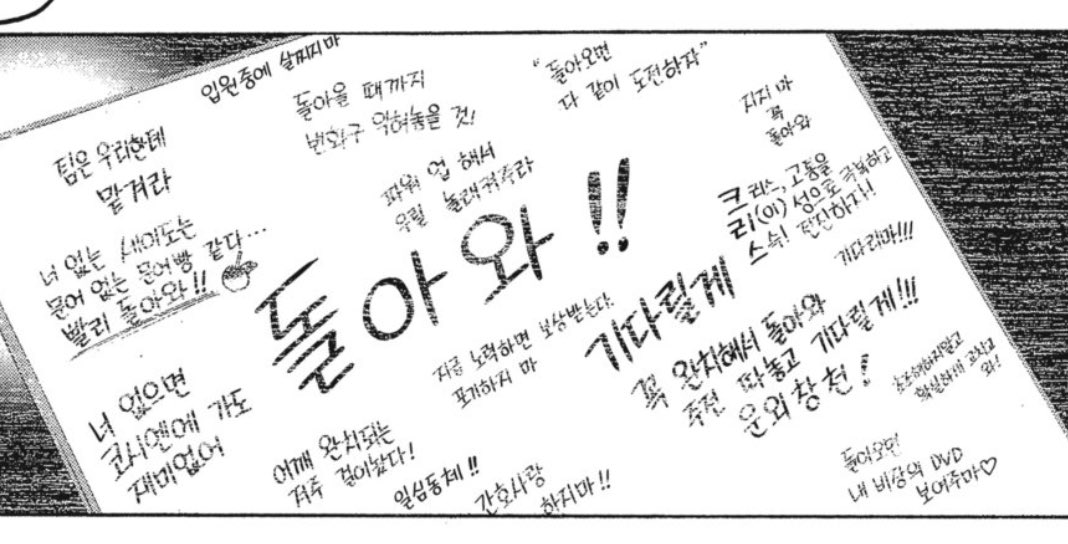 입원중에 살찌지마
돌아올 때까지
변화구 익혀놓을 것!
"돌아오면
다 같이 도전하자"
지지 마
꼭
돌아와
팀은 우리한테
맡겨라
파워 업 해서
우릴 놀래켜주라
크리스, 고통을
리(이) 성으로 극복하고
스윽! 전진하자!!
기다리마!!!
너 없는 세이도는
문어 없는 문어빵 같다…
빨리 돌아와!!
돌아와!!
기다릴게
지금 노력하면 보상받는다
포기하지 마
꼭 완치해서 돌아와
주전 따놓고 기다릴게!!!
운외창천!
초조해하지말고
확실하게 고치고
와!
너 없으면
코시엔에 가도
재미없어
어깨 완치되는
저주 걸어놨다!
일심동체!!
간호사랑
하지마!!
돌아오면
내 비장의 DVD
보여주마♡